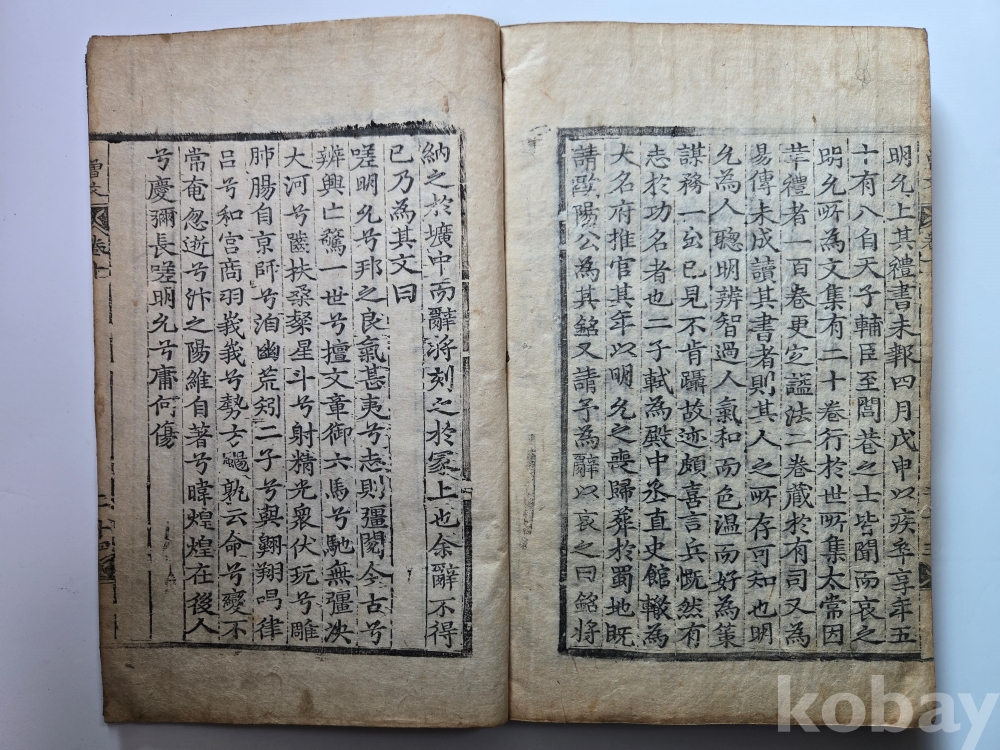 明允上其禮書未報四月戊申以疾卒享年五
十有八自天子輔臣至閭巷之士皆聞而哀之
明允所為文集有二十卷行於世所集太常因
革禮者一百卷更定諡法二卷蔵於有司又為
易傳未成讀其書者則其人之所存可知也明
允為人聰明辨智過人氣和而色温而好為策
謀務一出己見不肯躡故迹頗喜言兵慨然有
志於功名者也二子軾為殿中丞直史館轍為
大名府推官其年以明允之喪歸葬於蜀地既
請歐陽公為其銘又請予為辭以哀之曰銘將
納之於壙中而辭將刻之於冢上也余辭不得
已乃為其文曰
嗟明允兮邦之良氣甚夷兮志則彊閱今古兮
辨興亡驚一世兮擅文章御六馬兮馳無彊決
大河兮齧扶桑粲星斗兮射精光衆伏玩兮雕
肺腸自京師兮洎幽荒矧二子兮與翺翔鳴律
呂兮和宮商羽峩峩兮勢方颺孰云命兮變不
常奄忽逝兮汴之陽維自著兮暐煌煌在後人
兮慶彌長嗟明允兮庸何傷
曾文 卷十 二十四
kobay